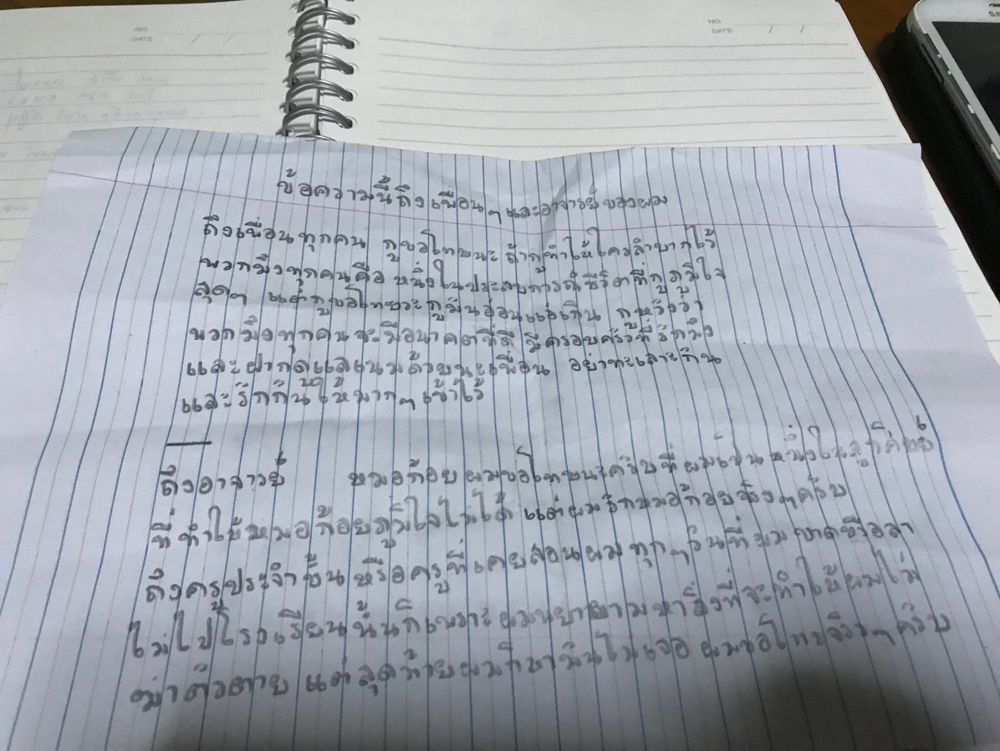 NO.
DATE / /
NO.
DATE / /
ข้อความนี้ถึงเพื่อนๆและอาจารย์ของผม
ถึงเพื่อนทุกคน กูขอโทษนะ ถ้ากูทำให้ใครลำบากไว้
พวกมึงทุกคนคือ หนึ่งในประสบการณ์ชีวิตที่กูภูมิใจ
สุดๆ แต่กูขอโทษนะกูมันอ่อนแอเกิน กูหวังว่า
พวกมึงทุกคนจะมีอนาคตที่ดี มีครอบครัวที่รักมึง
และฝากดูแลแนมด้วยนะเพื่อน อย่าทะเลาะกัน
และรักกันให้มากๆเข้าไว้
ถึงอาจารย์ หมอก้อยผมขอโทษนะครับที่ผมเป็นหนึ่งในลูกศิษย์
ที่ทำให้หมอก้อยภูมิใจไม่ได้ แต่ผมรักหมอก้อยจริงๆครับ
ถึงครูประจำชั้น หรือครูที่เคยสอนผม ทุกๆวันที่ผมขาดหรือลา
ไม่ไปโรงเรียนนั้นก็เพราะผมพยายามหาสิ่งที่จะทำให้ผมไม่
ฆ่าตัวตาย แต่สุดท้ายผมก็หามันไม่เจอ ผมขอโทษจริงๆครับ